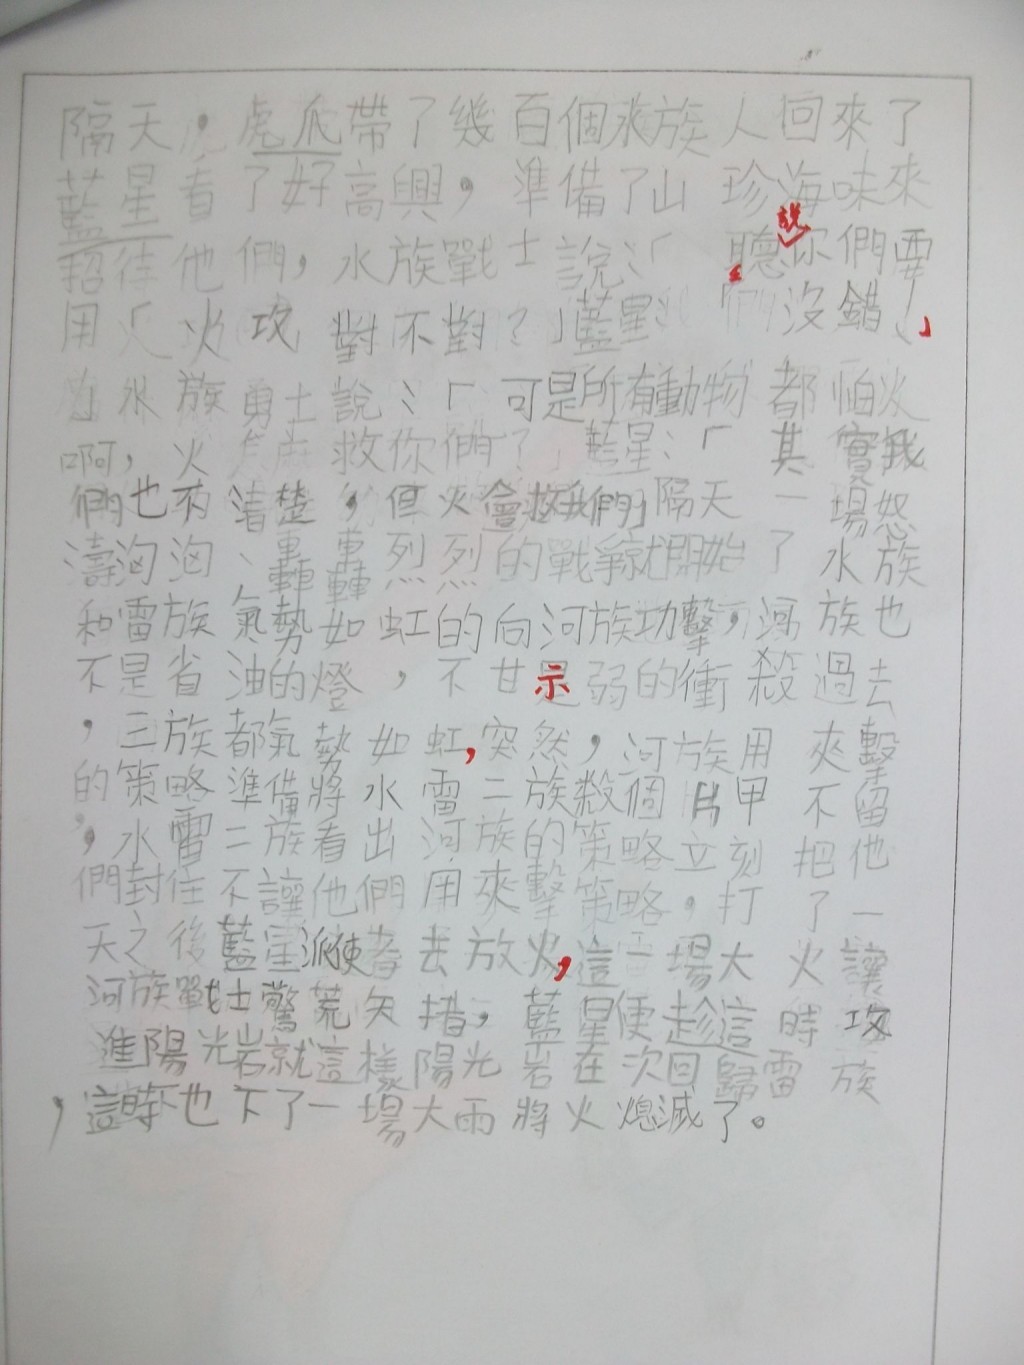 隔天，虎爪帶了幾百個水族人回來了
藍星看了好高興，準備了山珍海味來
招待他們，水族戰士說：「聽說你們要
用「火攻對不對？」藍星：「們沒錯！」
」水族勇士說：「可是所有動物都怕火
啊，火怎麻救你們？」藍星：「其實我
們也不清楚，但火會救我們」隔天一場怒
濤洶洶、轟轟烈烈的戰爭就開始了水族
和雷族氣勢如虹的向河族功擊，河族也
不是省油的燈，不甘示弱的衝殺過去
，三族都氣勢如虹，突然，河族用夾擊
的策略準備將水雷二族殺個片甲不留
，水雷二族看出河族的策略立刻把他
們封住不讓他們用夾擊策略，打了一
天之後藍星派使者去放火，這一場大火讓
河族戰士驚荒失措，藍星便趁這時攻
進陽光岩就這樣陽光岩在次回歸雷族
，這時下也下了一場大雨將火熄滅了。